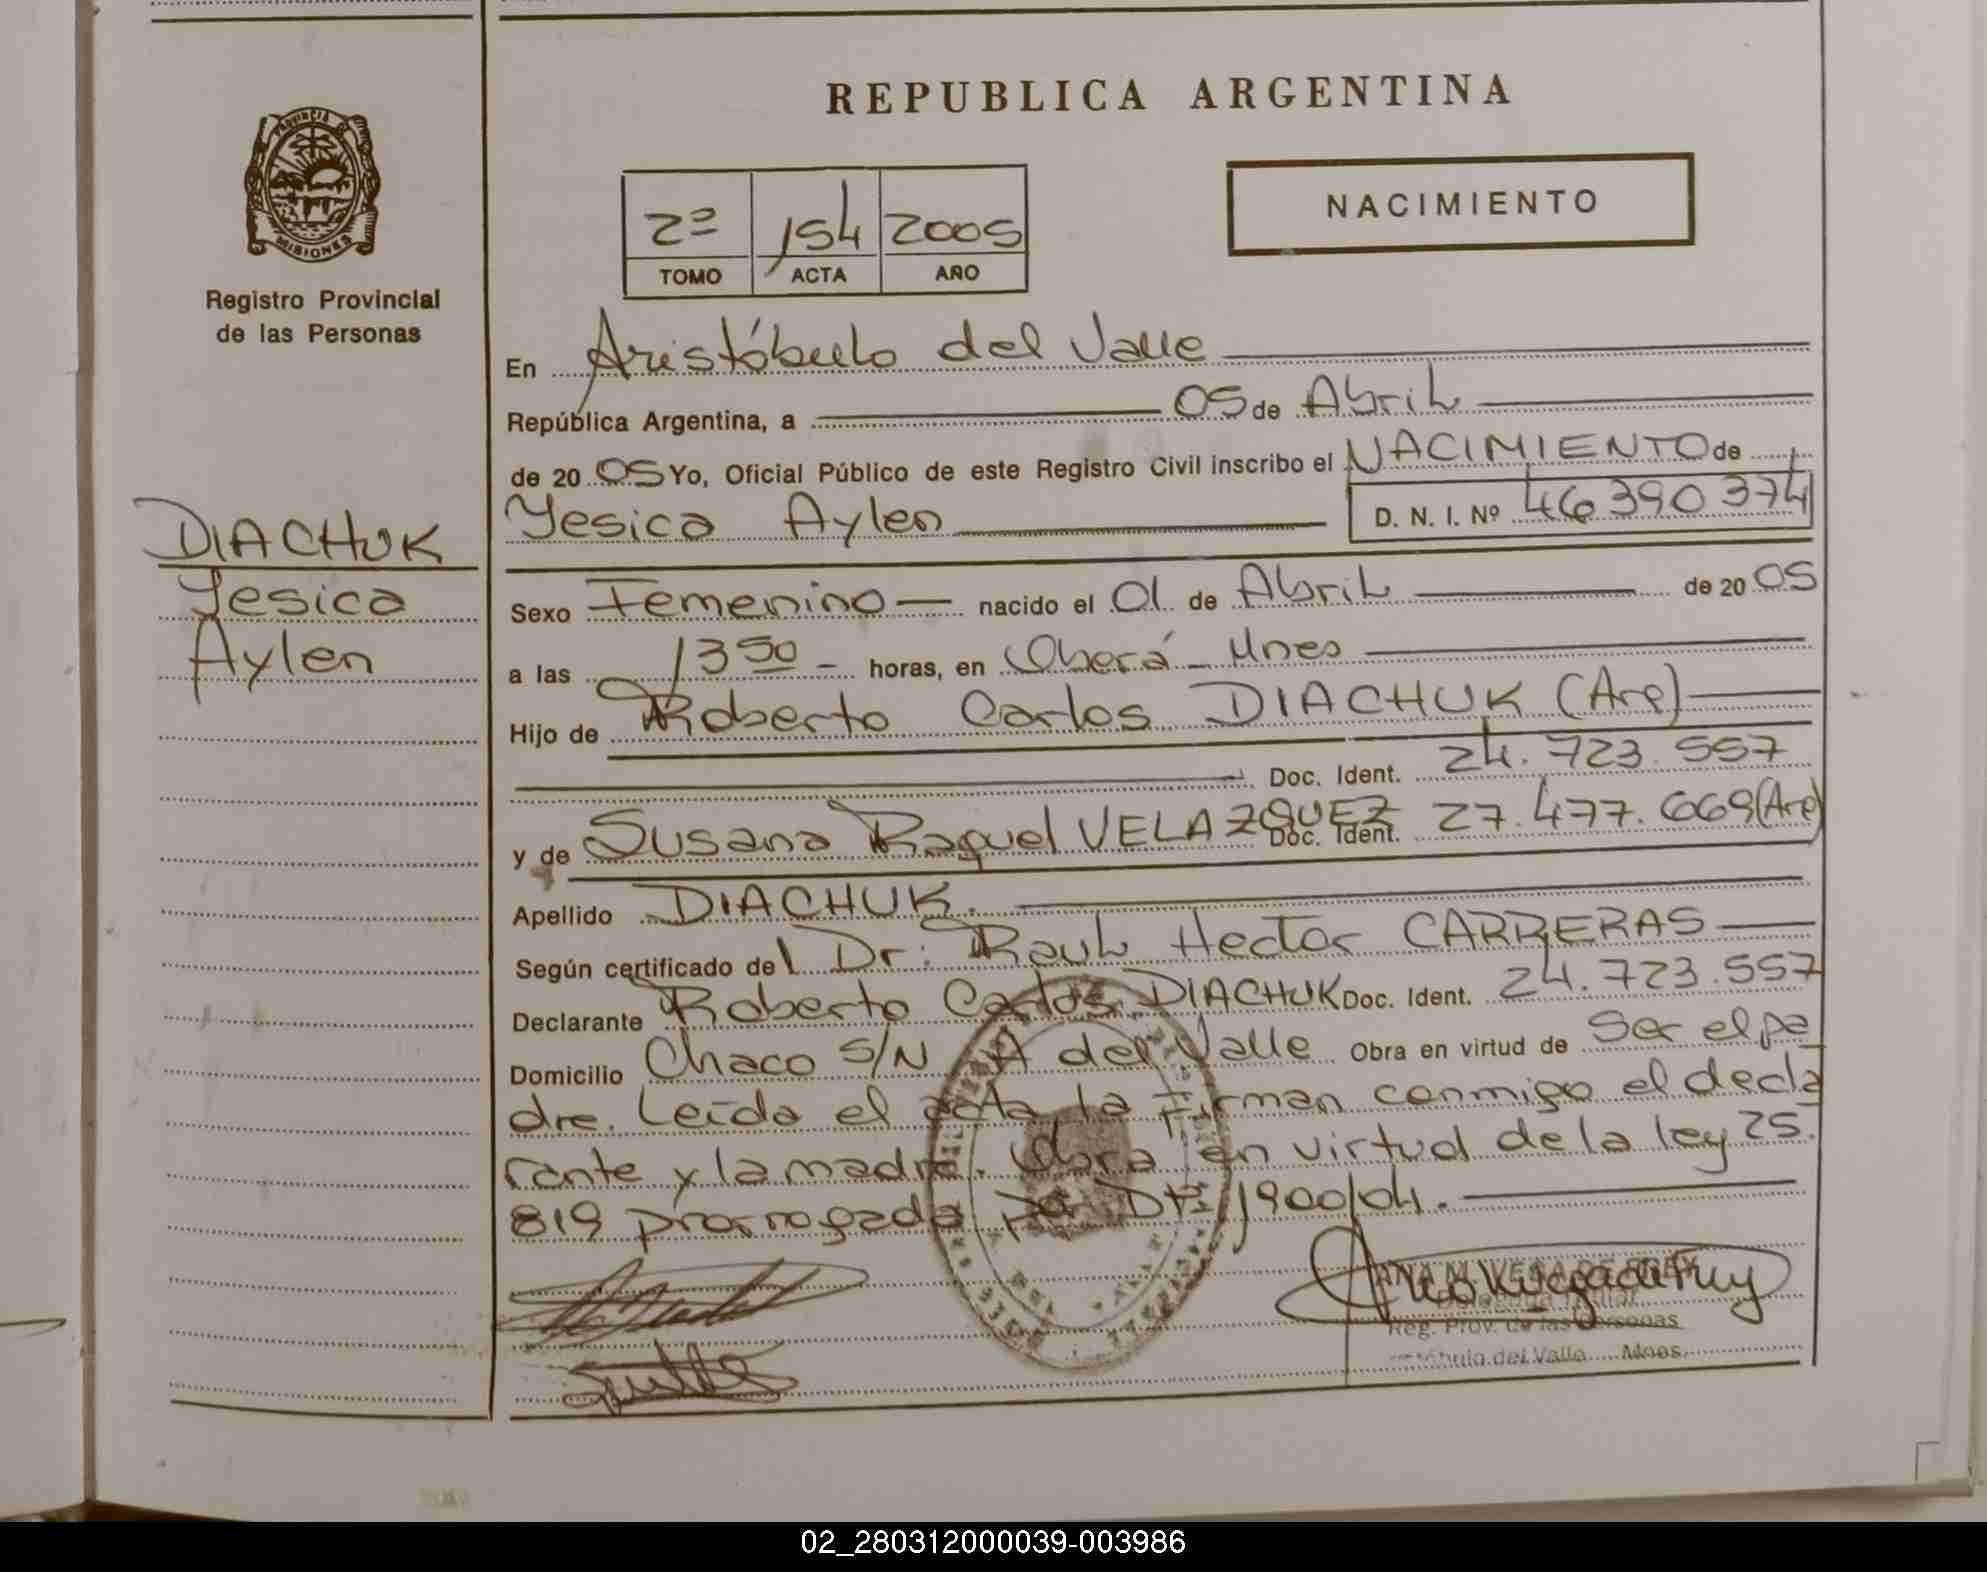 REPUBLICA ARGENTINA
PROVINCIA DE
MISIONES
Registro Provincial
de las Personas
NACIMIENTO
2º 154 2005
TOMO ACTA AÑO
En Aristóbulo del Valle
República Argentina, a 05 de Abril
de 2005 Yo, Oficial Público de este Registro Civil inscribo el NACIMIENTO de
Yesica Aylen D. N. I. Nº 46390374
DIACHUK
Yesica
Aylen
Sexo Femenino nacido el 01 de Abril de 2005
a las 13 50 horas, en Oberá - Mnes
Hijo de Roberto Carlos DIACHUK (Arg)
Doc. Ident. 24.723.557
y de Susana Raquel VELAZQUEZ Doc. Ident. 27.477.669 (Arg)
Apellido DIACHUK.
Según certificado del Dr. Raul Hector CARRERAS
Declarante Roberto Carlos DIACHUK Doc. Ident. 24.723.557
Domicilio Chaco S/N A del Valle Obra en virtud de Ser el pa
dre. Leída el acta la firman conmigo el decla
rante y la madre. Obra en virtud de la ley 25.
819 prorrogada por 1900/04.
Reg. Prov. de las Personas
del Valle Mnes.
02_280312000039-003986